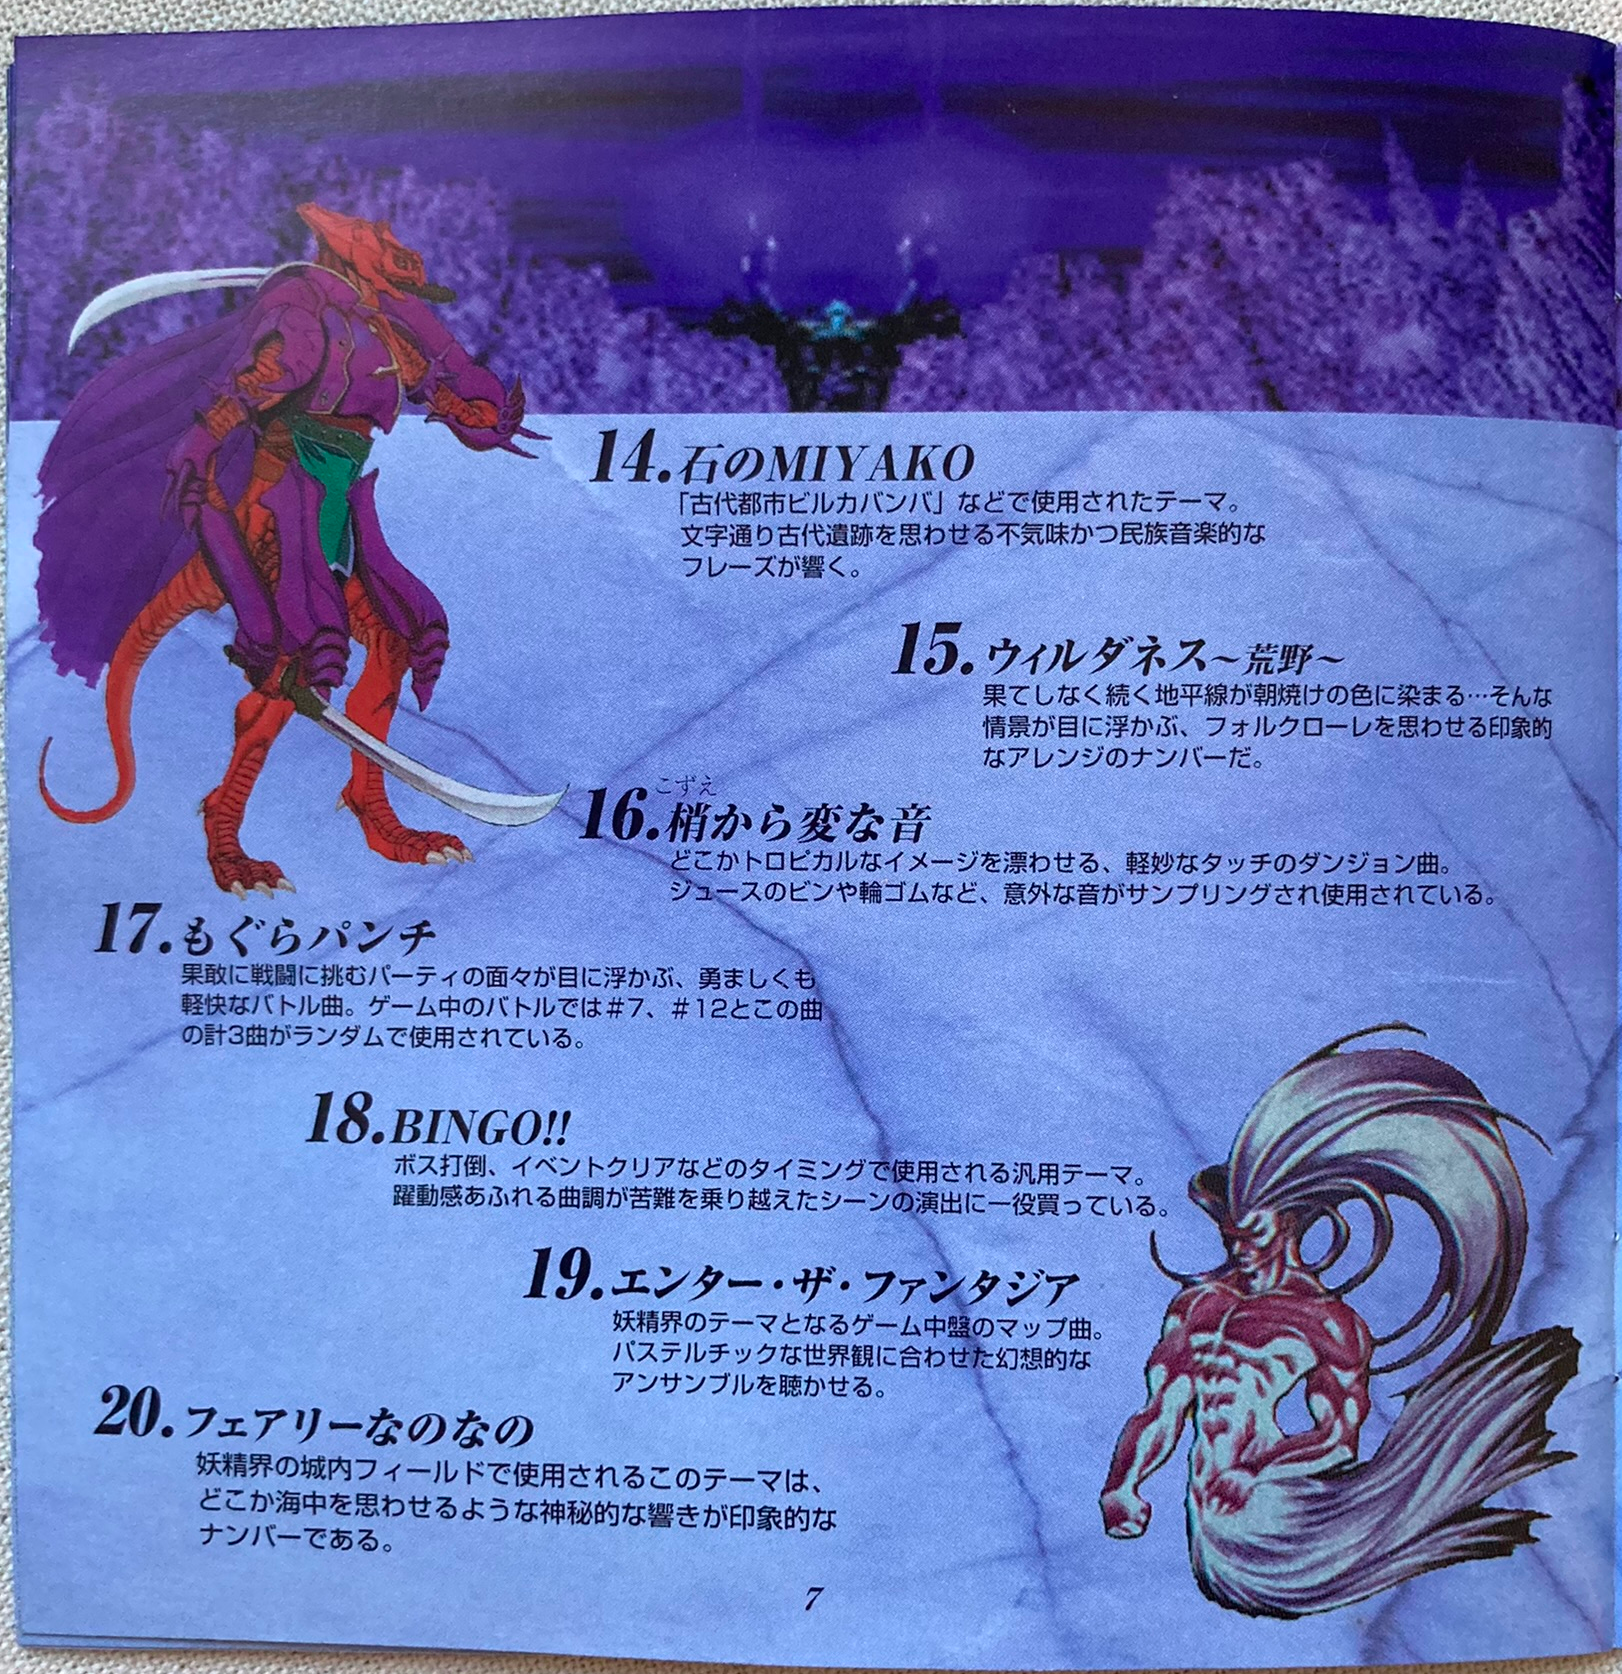 14.石のMIYAKO
「古代都市ビルカバンバ」などで使用されたテーマ。
文字通り古代遺跡を思わせる不気味かつ民族音楽的な
フレーズが響く。
15.ウィルダネス～荒野～
果てしなく続く地平線が朝焼けの色に染まる…そんな
情景が目に浮かぶ、フォルクローレを思わせる印象的
なアレンジのナンバーだ。
こずえ
16.梢から変な音
どこかトロピカルなイメージを漂わせる、軽妙なタッチのダンジョン曲。
ジュースのビンや輪ゴムなど、意外な音がサンプリングされ使用されている。
17.もぐらパンチ
果敢に戦闘に挑むパーティの面々が目に浮かぶ、勇ましくも
軽快なバトル曲。ゲーム中のバトルでは#7、#12とこの曲
の計3曲がランダムで使用されている。
18.BINGO!!
ボス打倒、イベントクリアなどのタイミングで使用される汎用テーマ。
躍動感あふれる曲調が苦難を乗り越えたシーンの演出に一役買っている。
19.エンター・ザ・ファンタジア
妖精界のテーマとなるゲーム中盤のマップ曲。
パステルチックな世界観に合わせた幻想的な
アンサンブルを聴かせる。
20.フェアリーなのなの
妖精界の城内フィールドで使用されるこのテーマは、
どこか海中を思わせるような神秘的な響きが印象的な
ナンバーである。
7